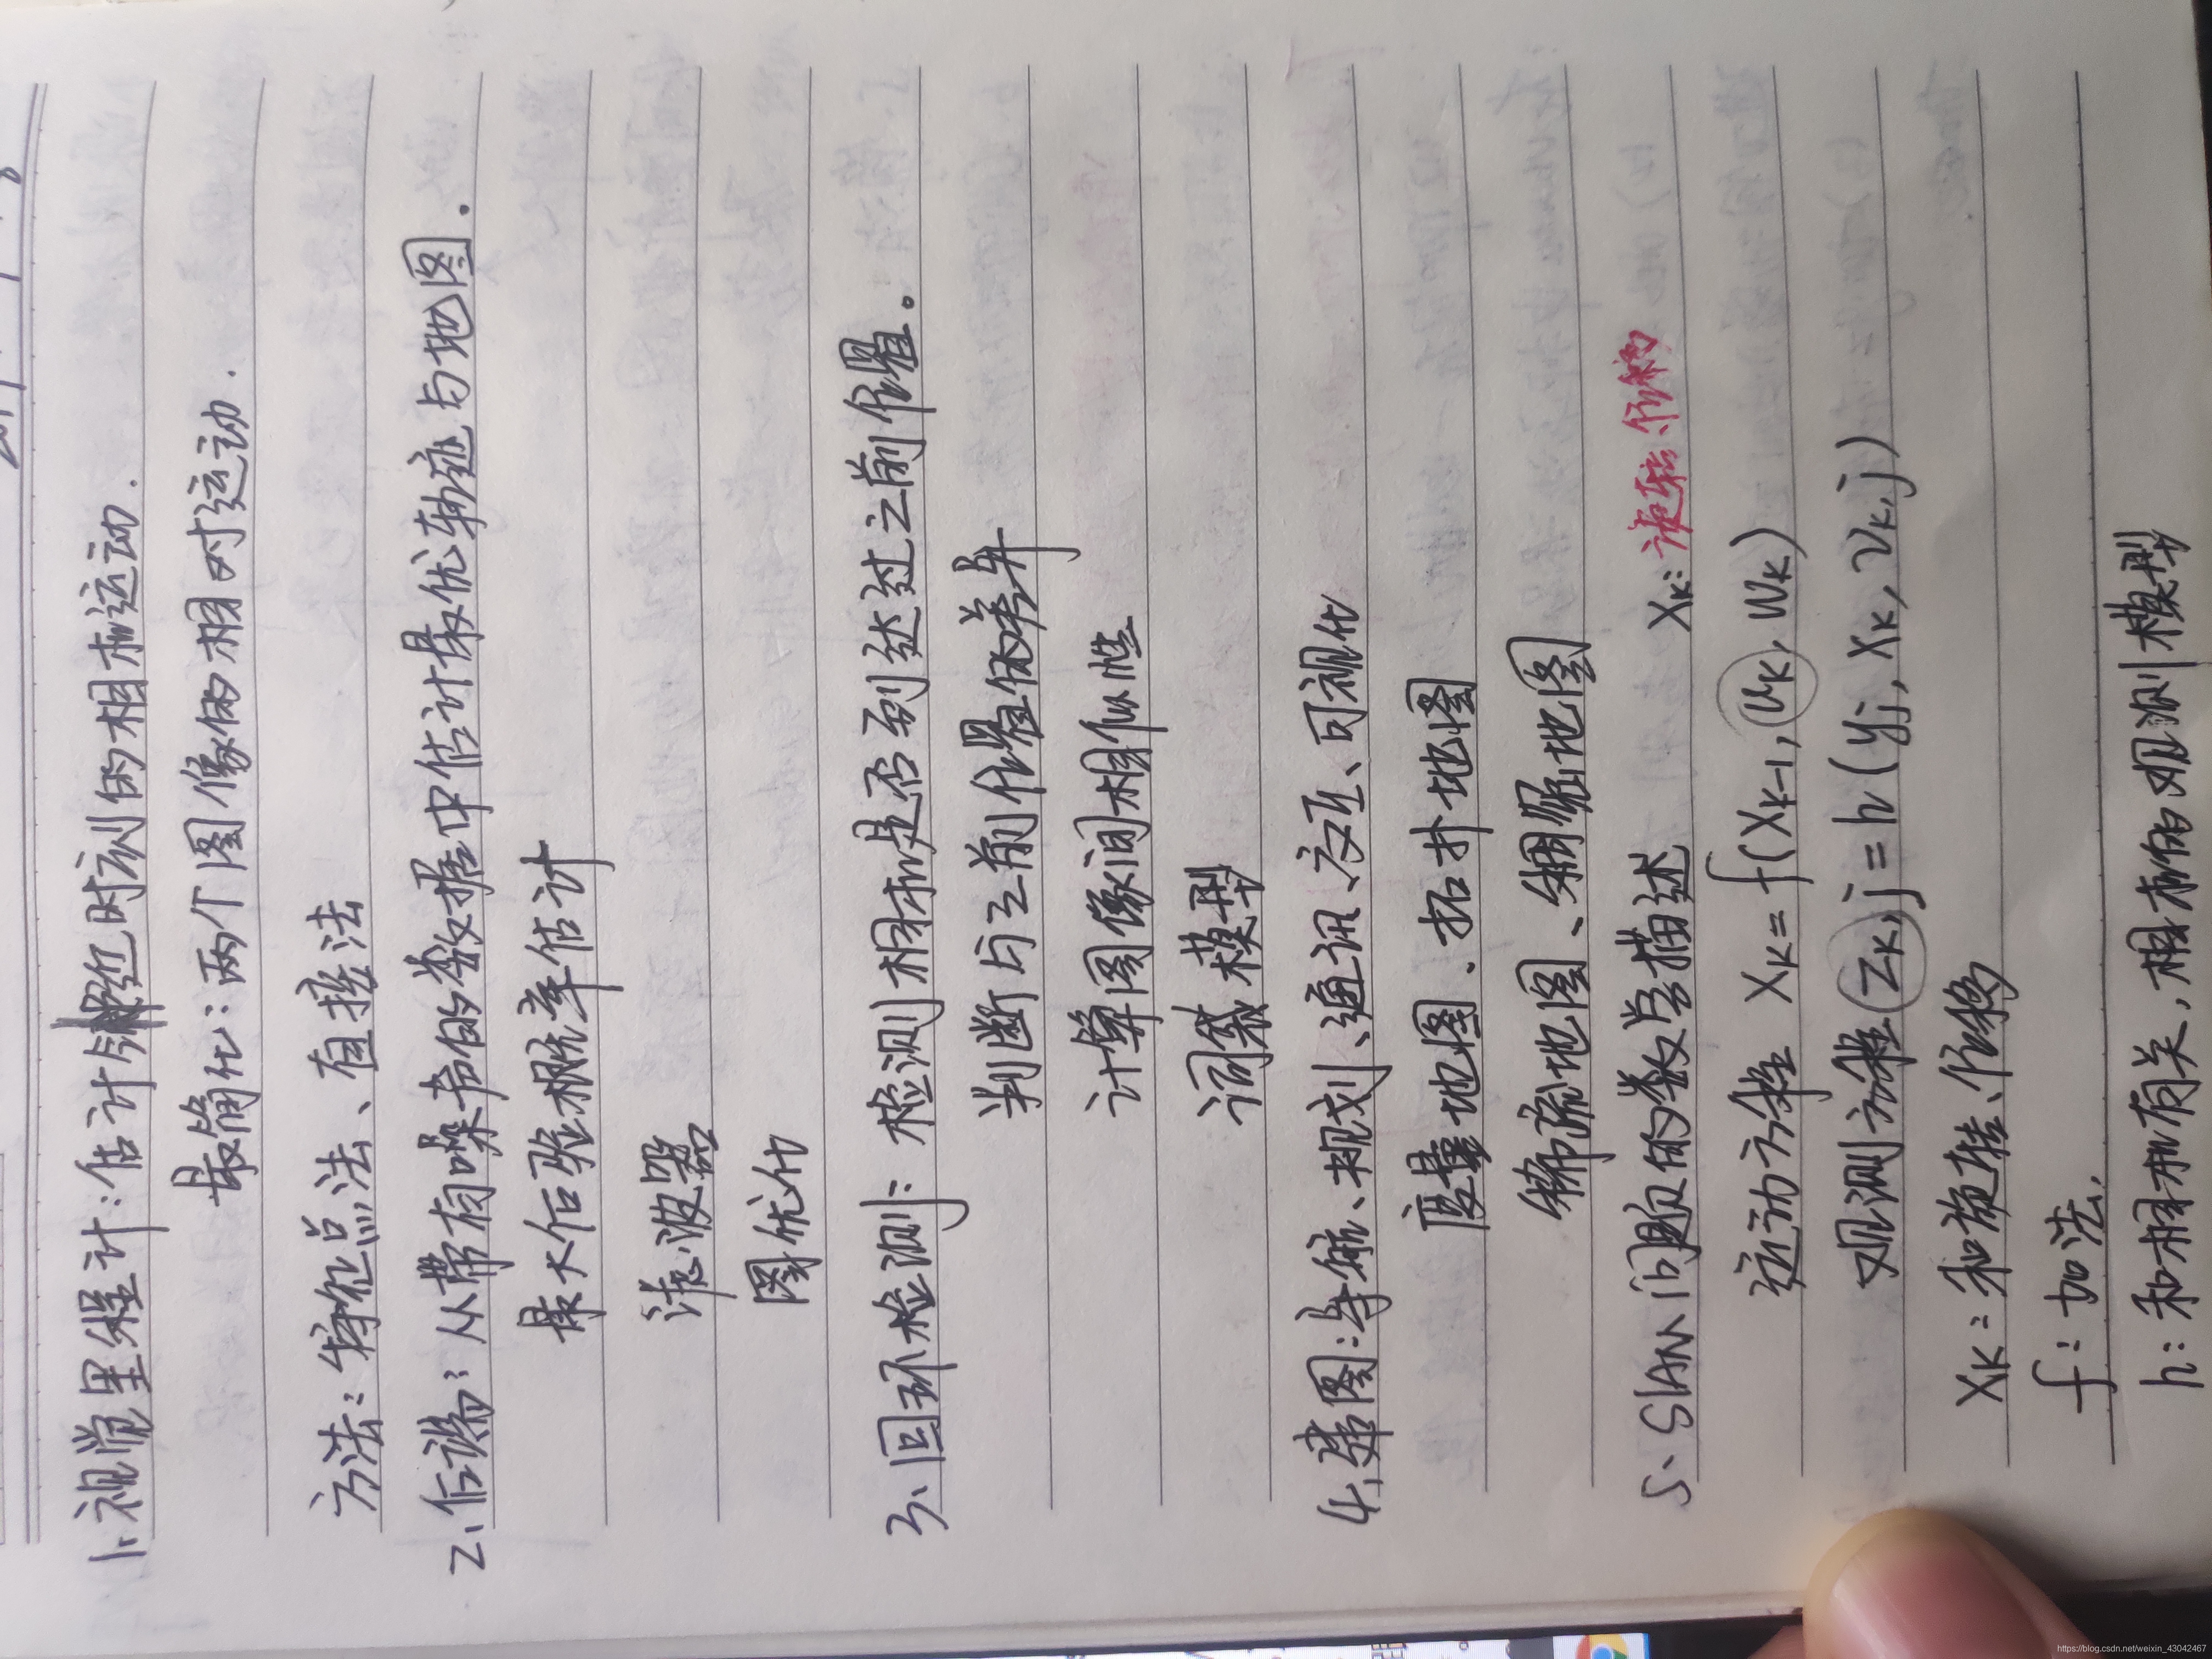 1、视觉里程计：估计邻近时刻的相机运动.
最简化：两个图像的相对运动.
方法：特征点法、直接法
2、后端：从带有噪声的数据中估计最优轨迹与地图.
最大后验概率估计
滤波器
图优化
3、回环检测：检测相机是否到达过之前位置。
判断与之前位置的差异
计算图像间相似性
词袋模型
4、建图：导航、规划、通讯、交互、可视化
度量地图.拓扑地图
稀疏地图、稠密地图
5、SLAM问题的数学描述 Xk: 旋转、位移
运动方程 Xk = f(Xk-1, uk, wk)
观测方程 Zk,j = h(yj, Xk, vk,j)
Xk：和旋转、位移
f：加法.
h：和相机有关，相机的观测模型
https://blog.csdn.net/weixin_43042467